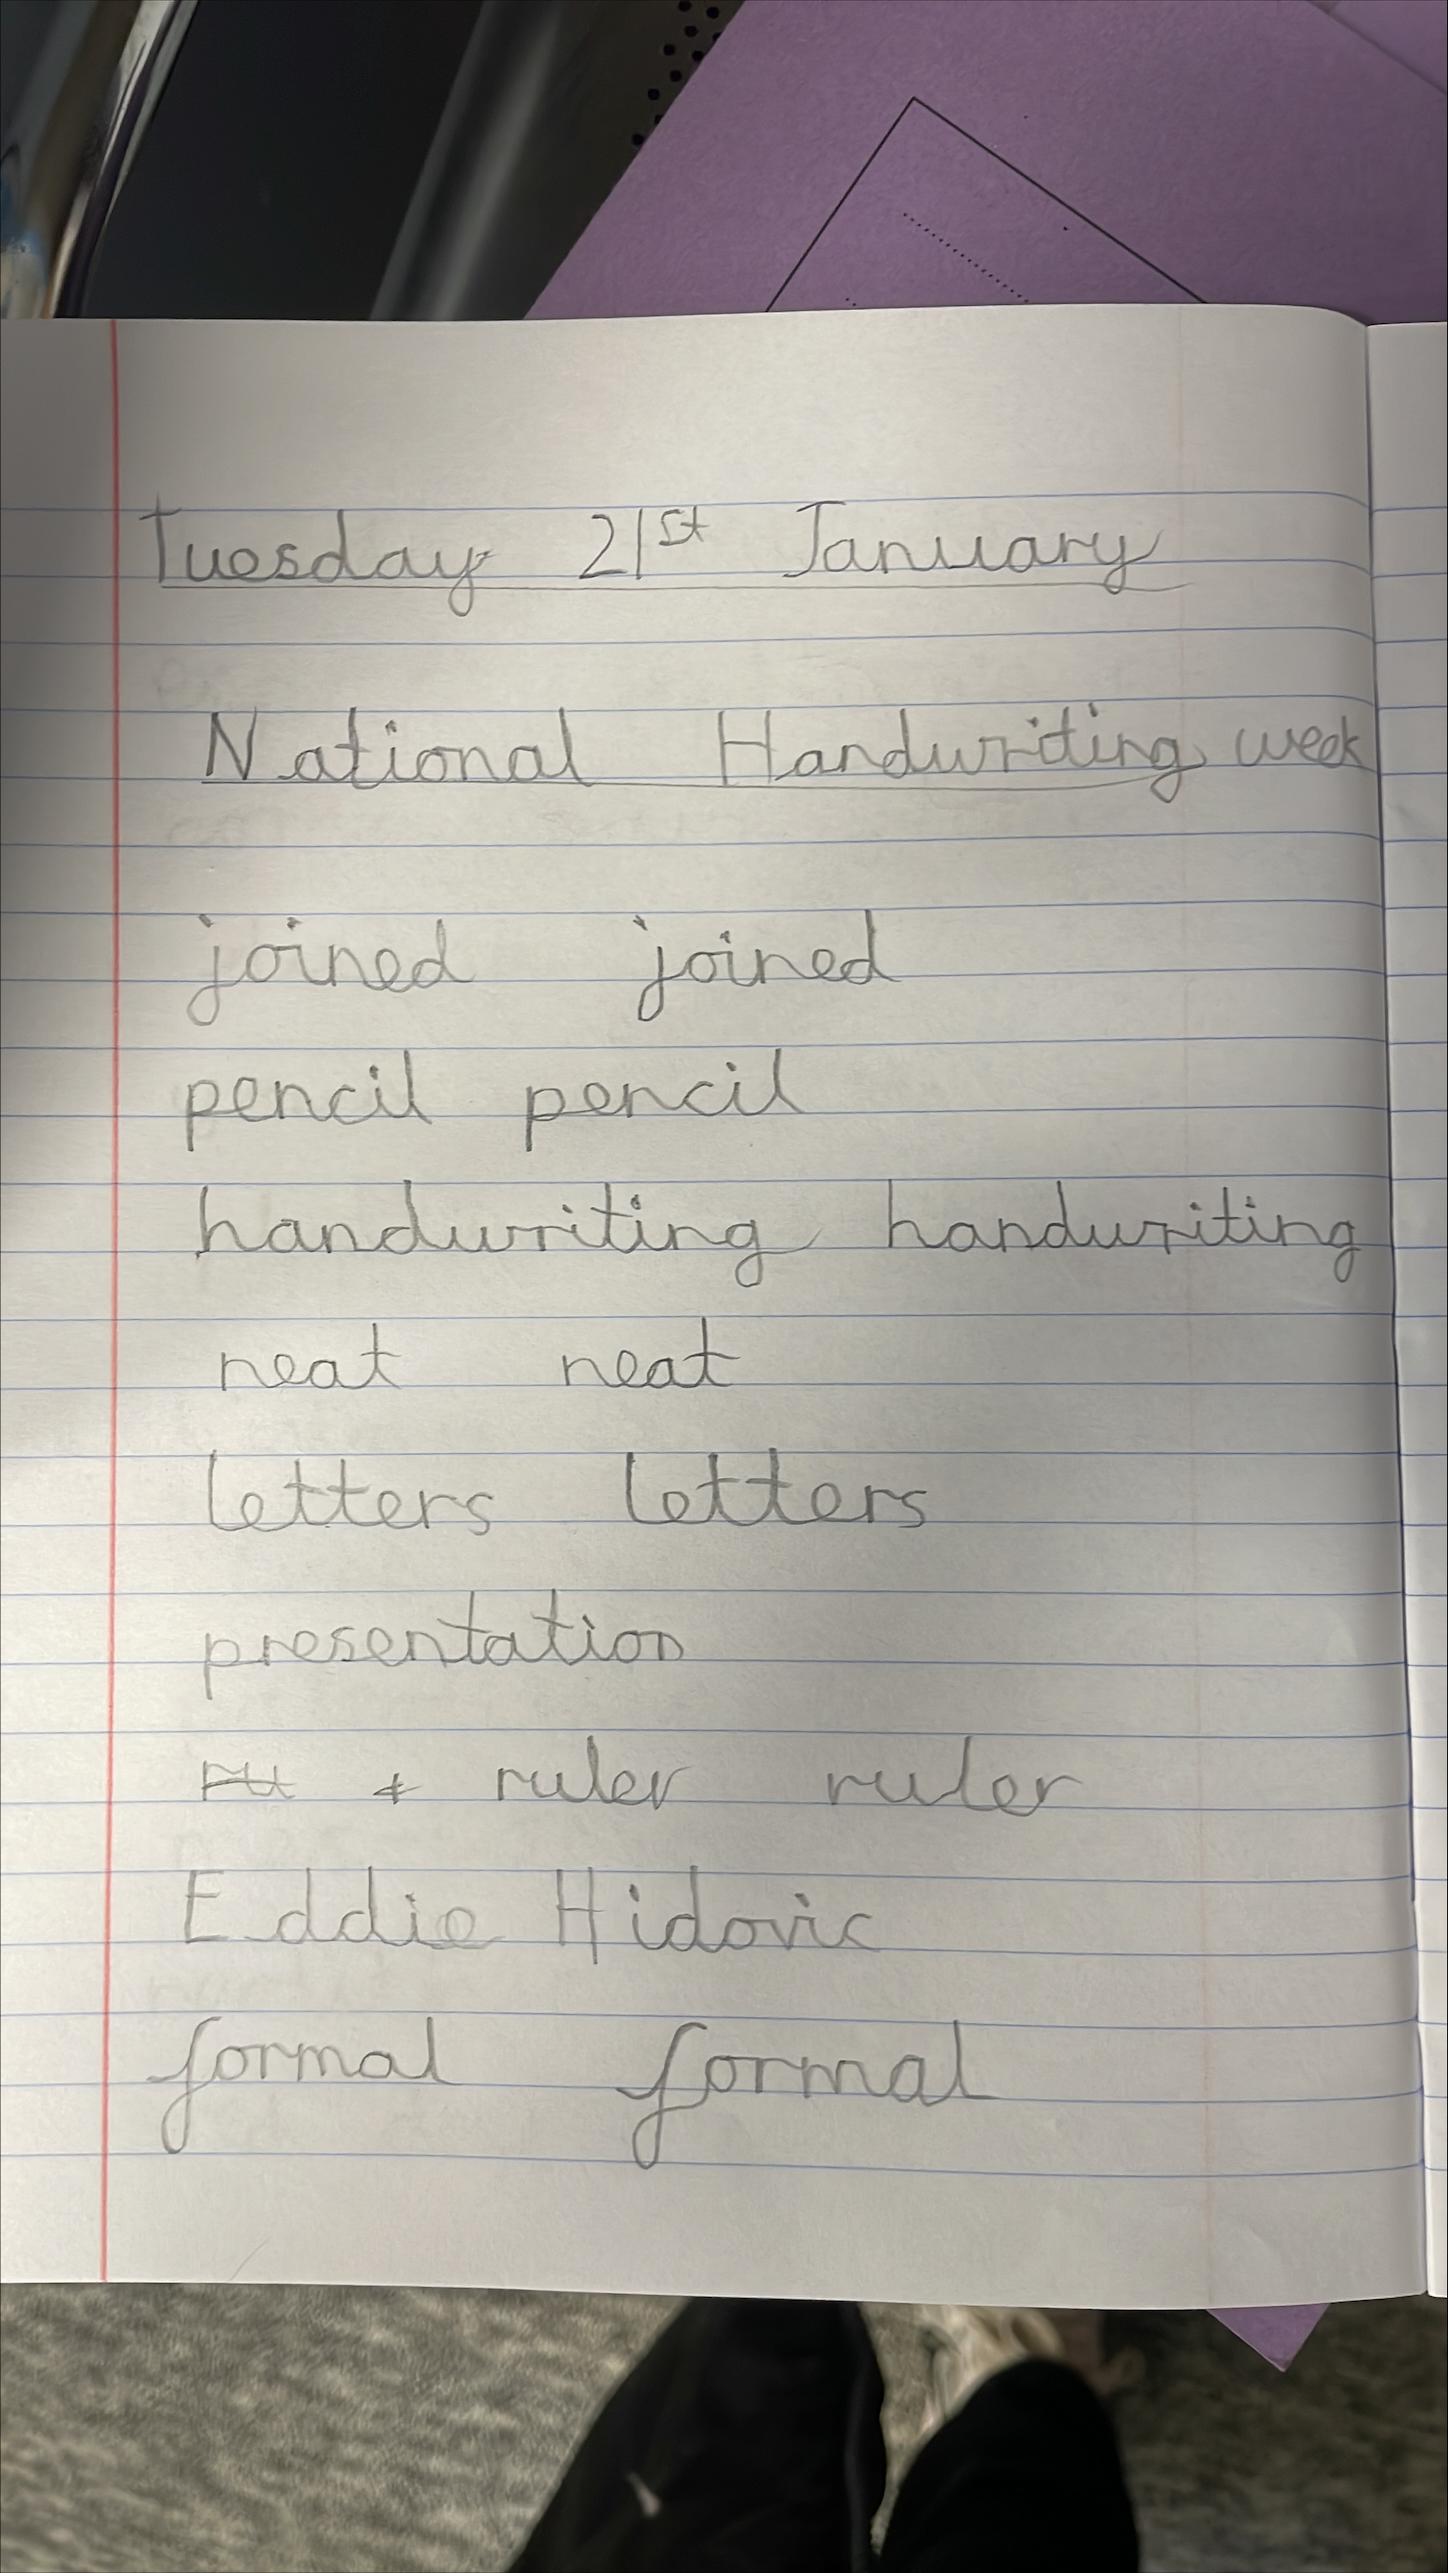 Tuesday 21st January
National Handwriting week
joined joined
pencil pencil
handwriting handwriting
neat neat
letters letters
presentation
ruler ruler
Eddie Hidovic
formal formal